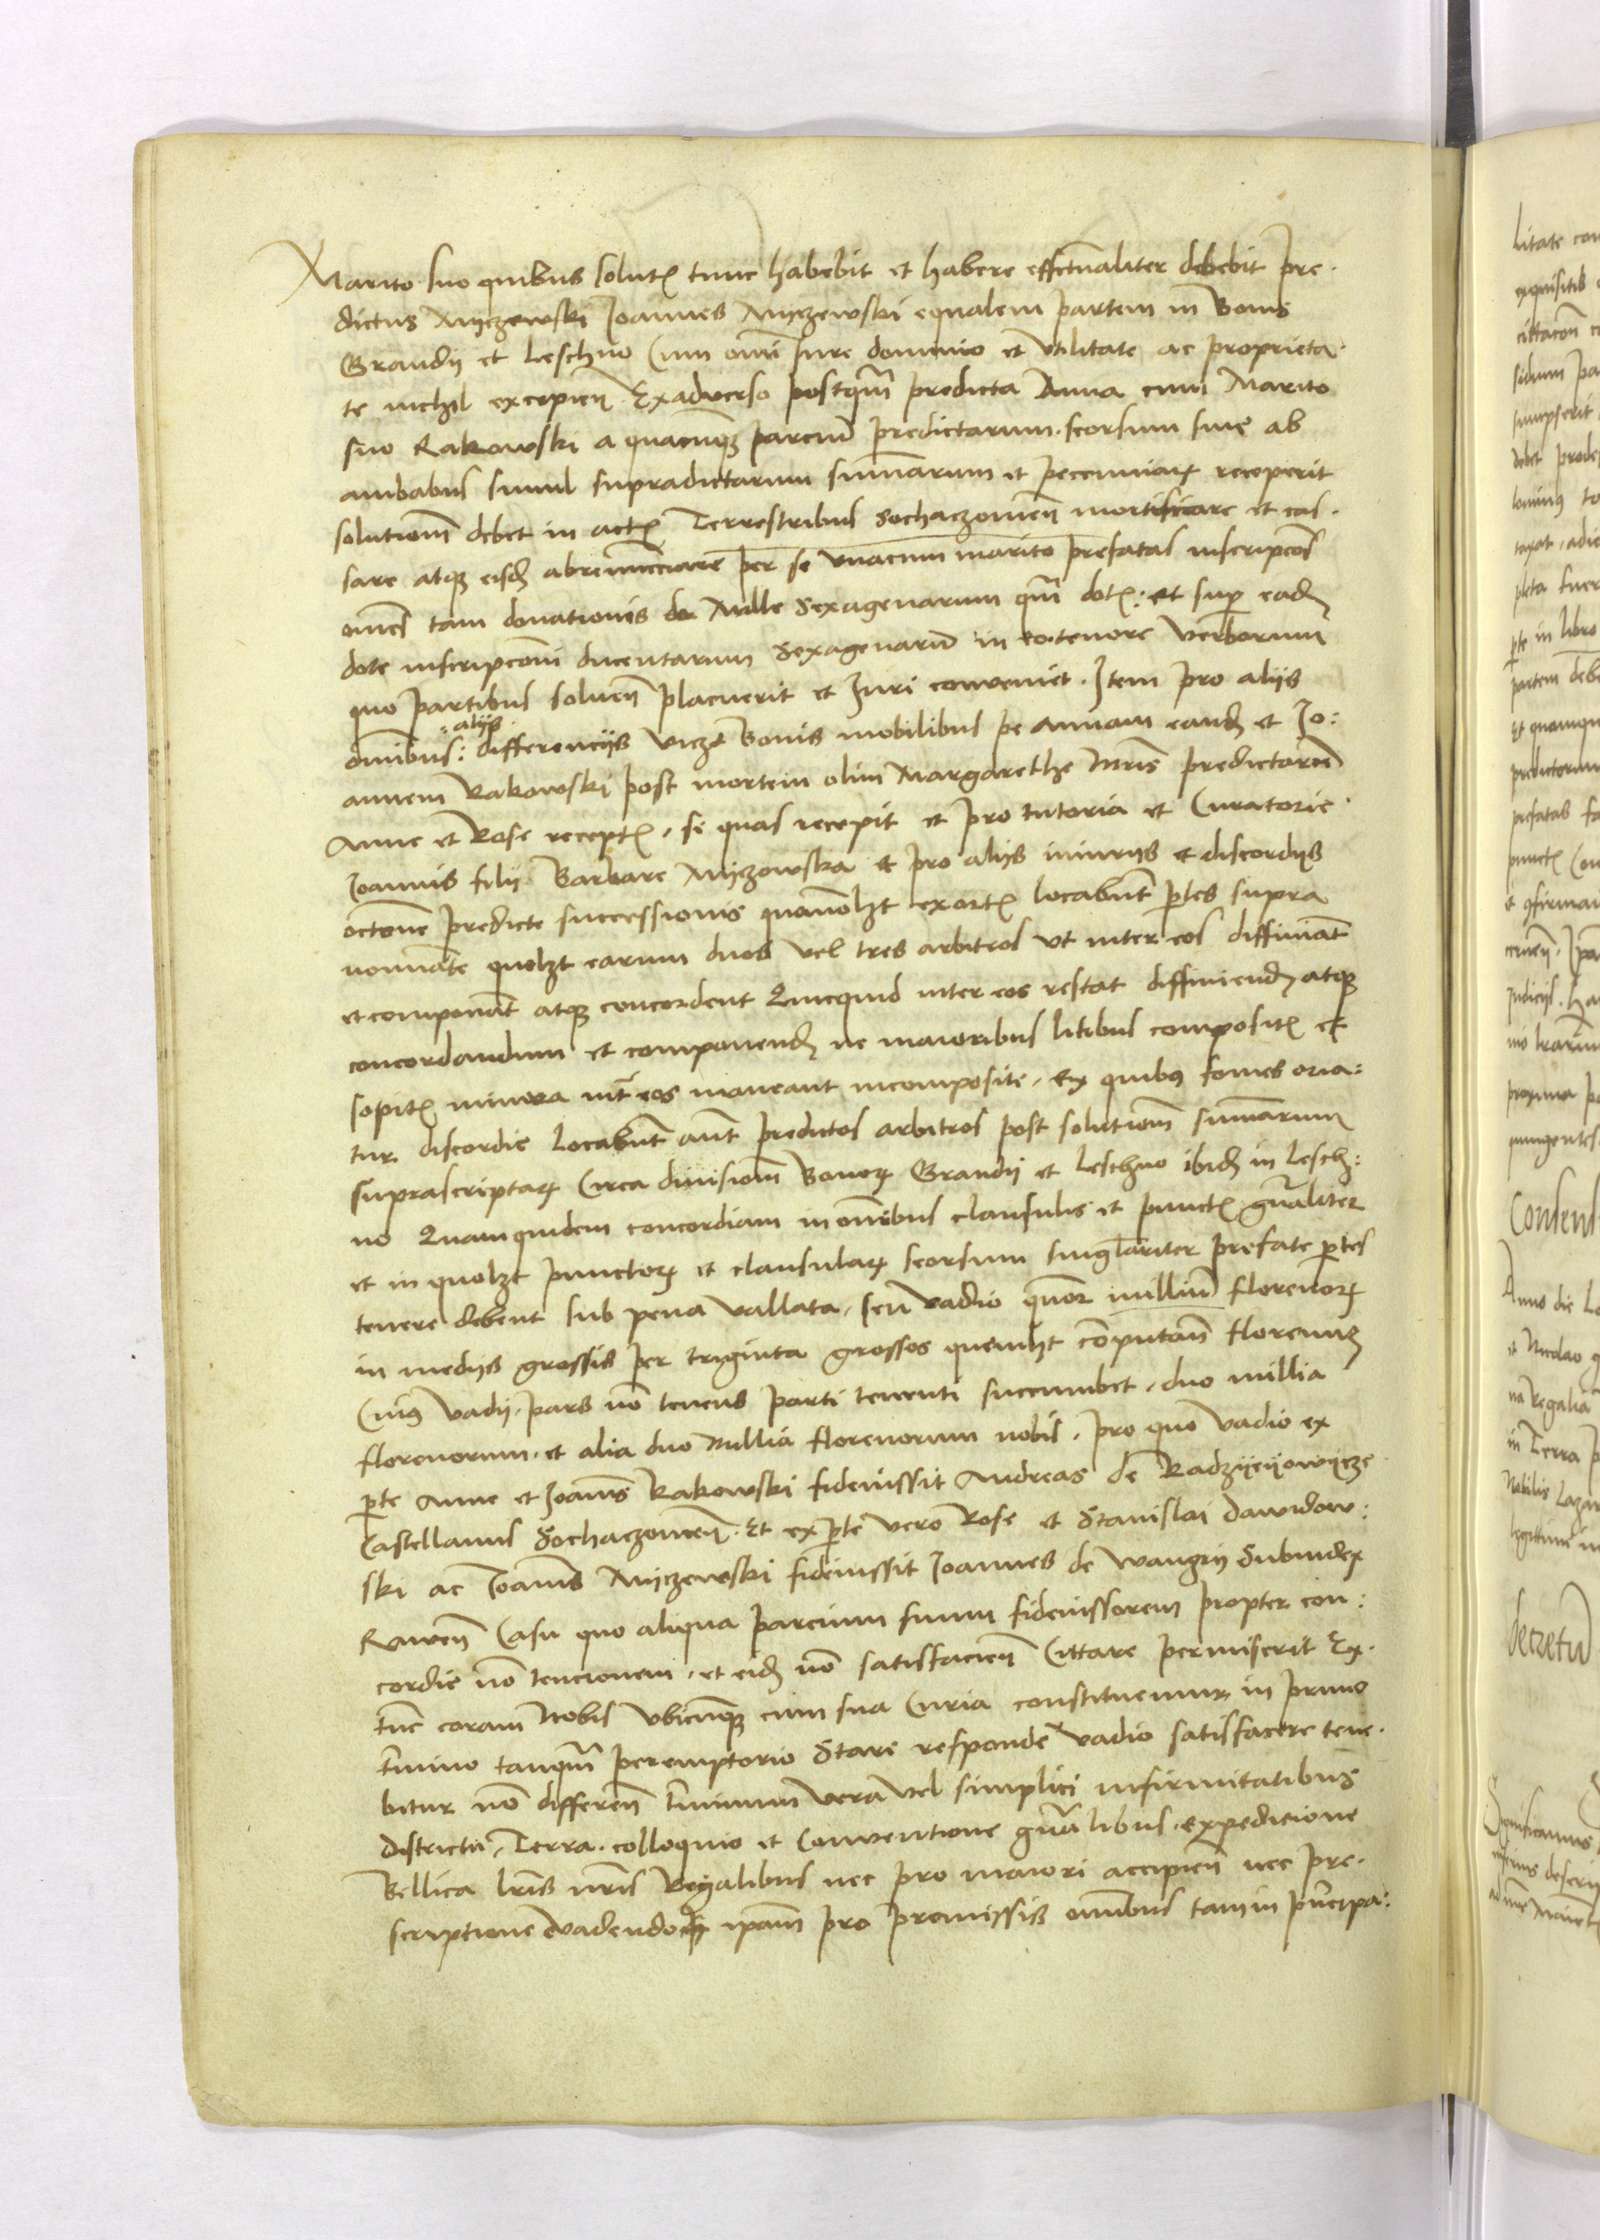 Marito suo quibus solutꝭ tunc habebit et habere effectualiter debebit pre-
dictus Myczewski Joannes Myczewski equalem partem in bonis
Grandij et Leschno Cum omni Jure dominio et Utilitate ac proprieta-
te nichil excipien̄. Exadverso postqm̄ predicta Anna cum Marito
suo Rakowski a quacunqꝫ parciū predictarum seorsum sive ab
ambabus simul supradictarum summarum et pecuniarꝝ receperit
solutionem debet in actꝭ Terrestribus Sochaczowien̄ mortificare et cas-
sare atqꝫ eisdꝫ abrenuncciare per se unacum marito prefatas inscripcōes
omnes tam donationis de Mille Sexagenarum qm̄ dotꝭ: et supꝫ eadꝫ
dote inscripcōem ducentarum Sexagenarū in eo tenore verborum
quo partibus solven̄ placuerit et Juri conveniet. Item pro alijs
omnibus: alijs differencijs viczꝫ bonis mobilibus pe Annam eandꝫ et Jo:
annem Rakowski post mortem olim Margarethe Mr̄is predictarū
Anne et Rose receptꝭ, si quas recepit et pro tutoria et Curatorie
Joannis filij Barbare Myczowska et pro alijs iniurijs et discordijs
octone predicte successionis quamolꝫt exortꝭ locabunt ptes supra
nominate quelꝫt earum duos vel tres arbitros ut inter eos diffiniāt
et componāt atqꝫ concordent Quicquid inter eos restat diffiniendꝫ atqꝫ
concordandum et componendꝫ ne maioribus litibus compositꝭ et
sopitꝭ minora int̄ eos maneant incomposite, Ex quibus fomes oria:
tur discordie Locabunt aūt predictos arbitros post solutionem summarum
suprascriptarꝝ Circa divisionem bonorꝝ Grandij et Leschno ibidꝫ in Lesch:
no Quamquidem concordiam in omnibus clausulis et punctꝭ gn̄aliter
et in quolꝫt punctorꝝ et clausularꝝ seorsum singlariter prefate ptes
tenere debent sub pena vallata, seu vadio quor̄ milliū florenorꝝ
in medijs grossis per triginta grossos quemlꝫt computan̄ florenum
Cuius vadij, pars nō tenens parti tenenti succumbet, duo millia
florenorum, et alia duo Millia florenorum nobis, pro quo vadio ex
pte Anne et Joannis Rakowski fideiussit Andreas de Radzyeyowycze
Castellanus Sochaczowien̄. Et ex pte vero Rose et Stanislai Dawidow:
ski ac Joannis Myczewski fideiussit Joannes de Wangrij Subiudex
Rawen̄ Casu quo aliqua parcium suum fideiussorem propter con:
cordie nō tencionem, et eidꝫ nō satisfacien̄ Cittare permiserit Ex-
tunc coram Nobis ubicunqꝫ cum sua Curia constituemur, in primo
termino tanqm̄ peremptorio Stare respondeʳ vadio satisfacere tene-
bitur nō differen̄ terminum vera vel simplici infirmitatibus
districtu, Terra, colloquio et Conventione gn̄alibus, expeditione
Bellica lr̄is nr̄is Regalibus nec pro maiori accipien̄ nec pre-
scriptione evadendo ipam̄ pro premissis omnibus tam in pncipa: